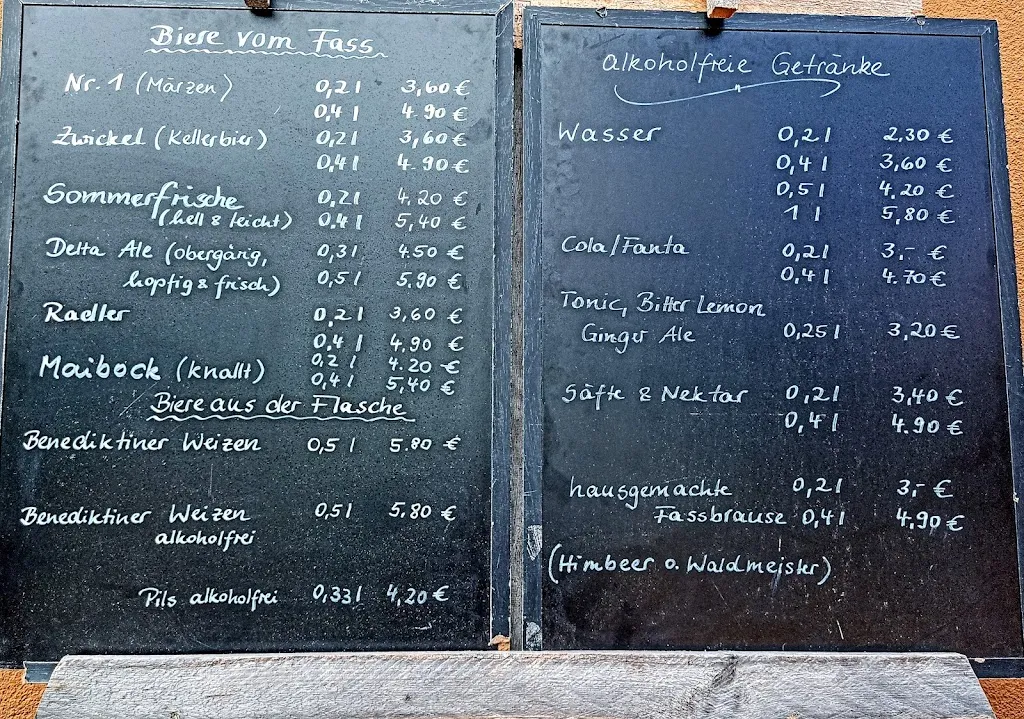 Biere vom Fass
Nr. 1 (Märzen) 0,2 l 3,60 €
0,4 l 4.90 €
Zwickel (Kellerbier) 0,2 l 3,60 €
0,4 l 4.90 €
Sommerfrische 0,2 l 4.20 €
(hell & leicht) 0.4 l 5,40 €
Delta Ale (obergärig, 0,3 l 4.50 €
hopfig & frisch) 0,5 l 5.90 €
Radler 0,2 l 3,60 €
0,4 l 4,90 €
Maibock (knallt) 0,2 l 4.20 €
0,4 l 5,40 €
Biere aus der Flasche
Benediktiner Weizen 0,5 l 5.80 €
Benediktiner Weizen 0,5 l 5.80 €
alkoholfrei
Pils alkoholfrei 0,33 l 4,20 €
alkoholfreie Getränke
Wasser 0,2 l 2,30 €
0,4 l 3,60 €
0,5 l 4,20 €
1 l 5,80 €
Cola/Fanta 0,2 l 3,- €
0,4 l 4.70 €
Tonic, Bitter Lemon
Ginger Ale 0,25 l 3,20 €
Säfte & Nektar 0,2 l 3,40 €
0,4 l 4.90 €
hausgemachte 0,2 l 3,- €
Fassbrause 0,4 l 4,90 €
(Himbeer o. Waldmeister)